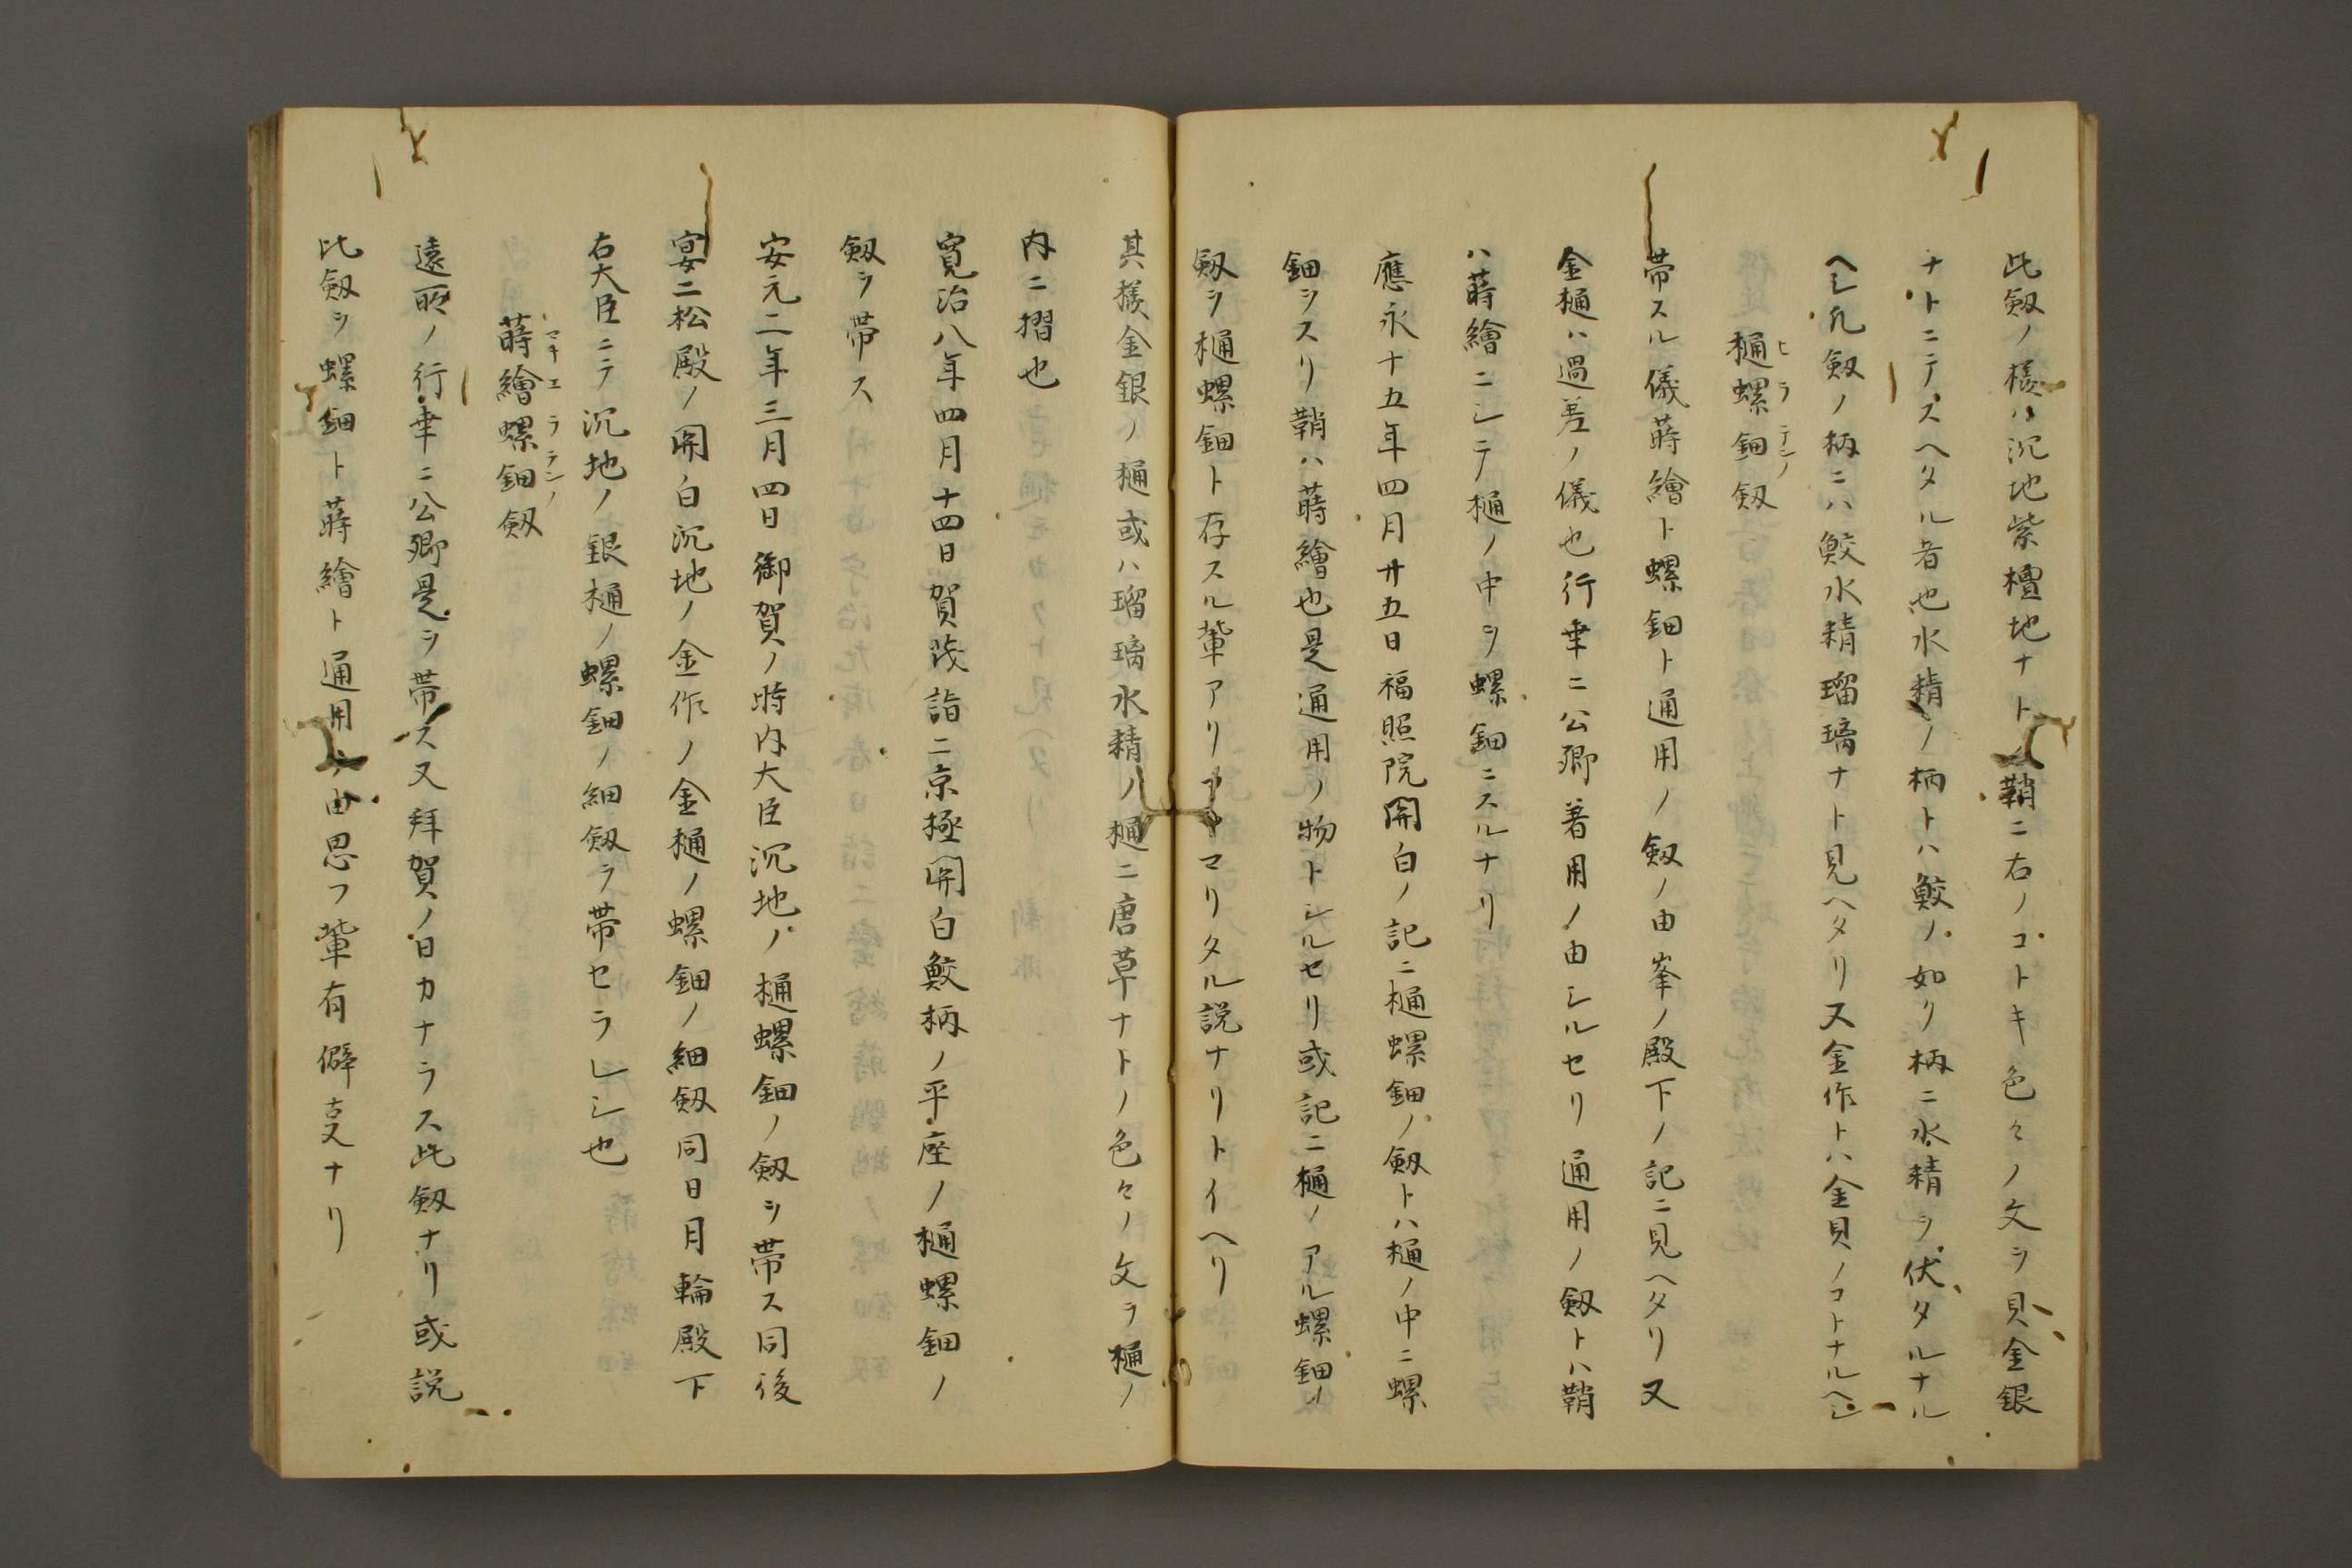 此剱ノ様ハ沉地紫檀地ナト鞘ニ右ノコトキ色々ノ文ヲ貝金銀
ナトニテスヘタル者也水精ノ柄トハ鮫ノ如ク柄ニ水精ヲ伏タルナル
ヘシ凡剱ノ柄ニハ鮫水精瑠璃ナト見ヘタリ又金作トハ金貝ノコトナルヘシ
樋螺鈿剱
ヒラテンノ
帯スル儀蒔繪ト螺鈿ト通用ノ剱ノ由峯ノ殿下ノ記ニ見ヘタリ又
金樋ハ過差ノ儀也行幸ニ公卿著用ノ由シルセリ通用ノ剱トハ鞘
ハ蒔繪ニシテ樋ノ中ヲ螺鈿ニスルナリ
應永十五年四月廿五日福照院関白ノ記ニ樋螺鈿ノ剱トハ樋ノ中ニ螺
鈿ヲスリ鞘ハ蒔繪也是通用ノ物トシルセリ或記ニ樋ノアル螺鈿ノ
剱ヲ樋螺鈿ト存スル輩アリアヤマリタル説ナリトイヘリ
其様金銀ノ樋或ハ瑠璃水精ノ樋ニ唐草ナトノ色々ノ文ヲ樋ノ
内ニ摺也
寛治八年四月十四日賀茂詣ニ京極関白鮫柄ノ平座ノ樋螺鈿ノ
剱ヲ帯ス
安元二年三月四日御賀ノ時内大臣沉地ノ樋螺鈿ノ剱ヲ帯ス同後
宴ニ松殿ノ関白沉地ノ金作ノ金樋ノ螺鈿ノ細剱同日月輪殿下
右大臣ニテ沉地ノ銀樋ノ螺鈿ノ細剱ヲ帯セラレシ也
蒔繪螺鈿剱
マキエラテンノ
遠所ノ行幸ニ公卿是ヲ帯ス又拜賀ノ日カナラス此剱ナリ或説
此剱ヲ螺鈿ト蒔繪ト通用ノ由思フ輩有僻事ナリ